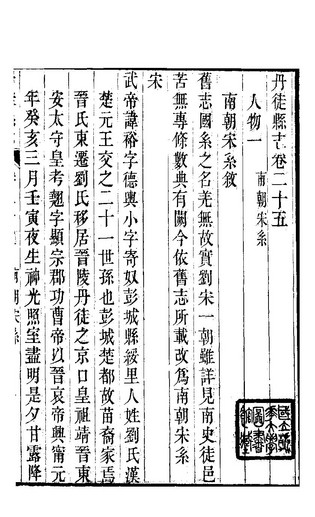 丹徒縣志卷二十五
人物一 南朝宋系
南朝宋系敘
舊志國系之名尤無故實劉宋一朝雖詳見南史徒邑
苦無專條數典有闕今依舊志所載改爲南朝宋系
宋
武帝諱裕字德輿小字寄奴彭城縣綏里人姓劉氏漢
楚元王交之二十一世孫也彭城楚都故苗裔家焉
晉氏東遷劉氏移居晉陵丹徒之京口皇祖靖晉東
安太守皇考翹字顯宗郡功曹帝以晉哀帝興甯元
年癸亥三月壬寅夜生神光照室盡明是夕甘露降
南朝宋系